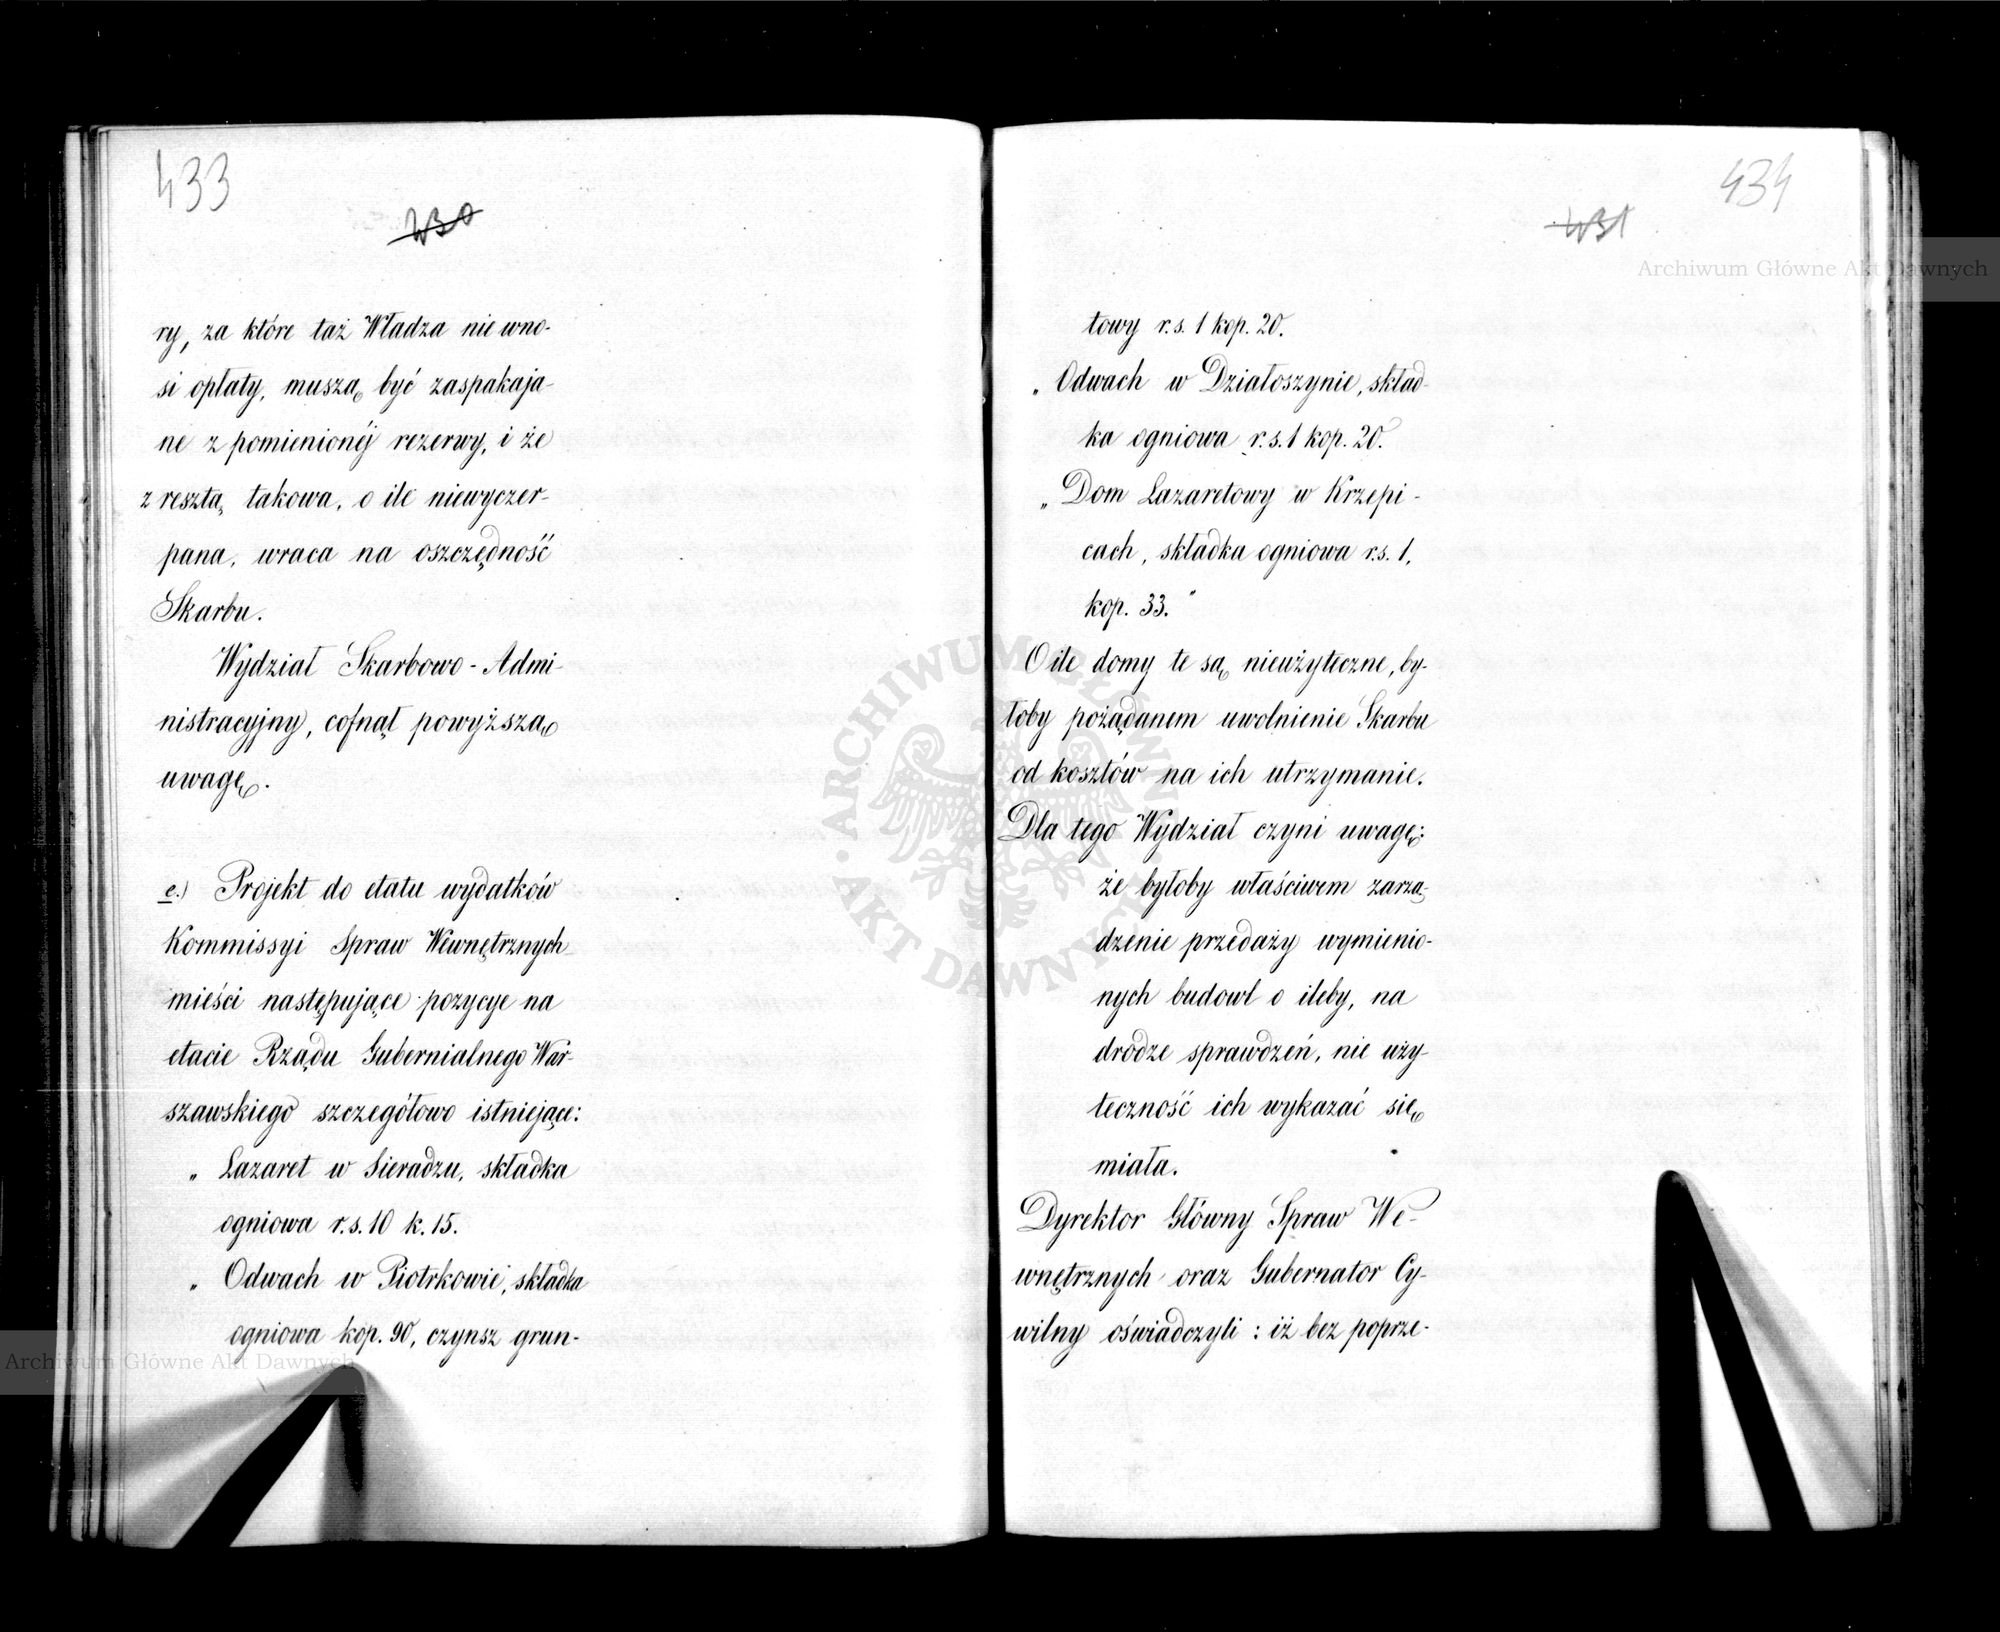 433
430
ry, za które taż Władza nie wno-
si opłaty, muszą być zaspakaja-
ne z pomienionéj rezerwy, i że
z resztą, takowa, o ile niewyczer-
pana, wraca na oszczędność
Skarbu.
Wydział Skarbowo-Admi-
nistracyjny, cofnął powyższą
uwagę.
e.) Projekt do etatu wydatków
Kommissyi Spraw Wewnętrznych
mieści następujące pozycye na
etacie Rządu Gubernialnego War-
szawskiego szczegółowo istniejące:
„ Lazaret w Sieradzu, składka
ogniowa r.s. 10 k. 15.
„ Odwach w Piotrkowie, składka
ogniowa kop. 90, czynsz grun-
434
431
towy r.s. 1 kop. 20.
„ Odwach w Działoszynie, skład-
ka ogniowa r.s. 1 kop. 20.
„ Dom Lazaretowy w Krzepi-
cach, składka ogniowa r.s. 1,
kop. 33."
O ile domy te są nieużyteczne, by-
łoby pożądanem uwolnienie Skarbu
od kosztów na ich utrzymanie.
Dla tego Wydział czyni uwagę:
że byłoby właściwem zarzą-
dzenie przedaży wymienio-
nych budowl o ileby, na
drodze sprawdzeń, nie uży-
teczność ich wykazać się
miała.
Dyrektor Główny Spraw We-
wnętrznych oraz Gubernator Cy-
wilny oświadczyli: iż bez poprze-
Archiwum Główne Akt Dawnych
Archiwum Główne Akt Dawnych
ARCHIWUM GŁÓWNE AKT DAWNYCH